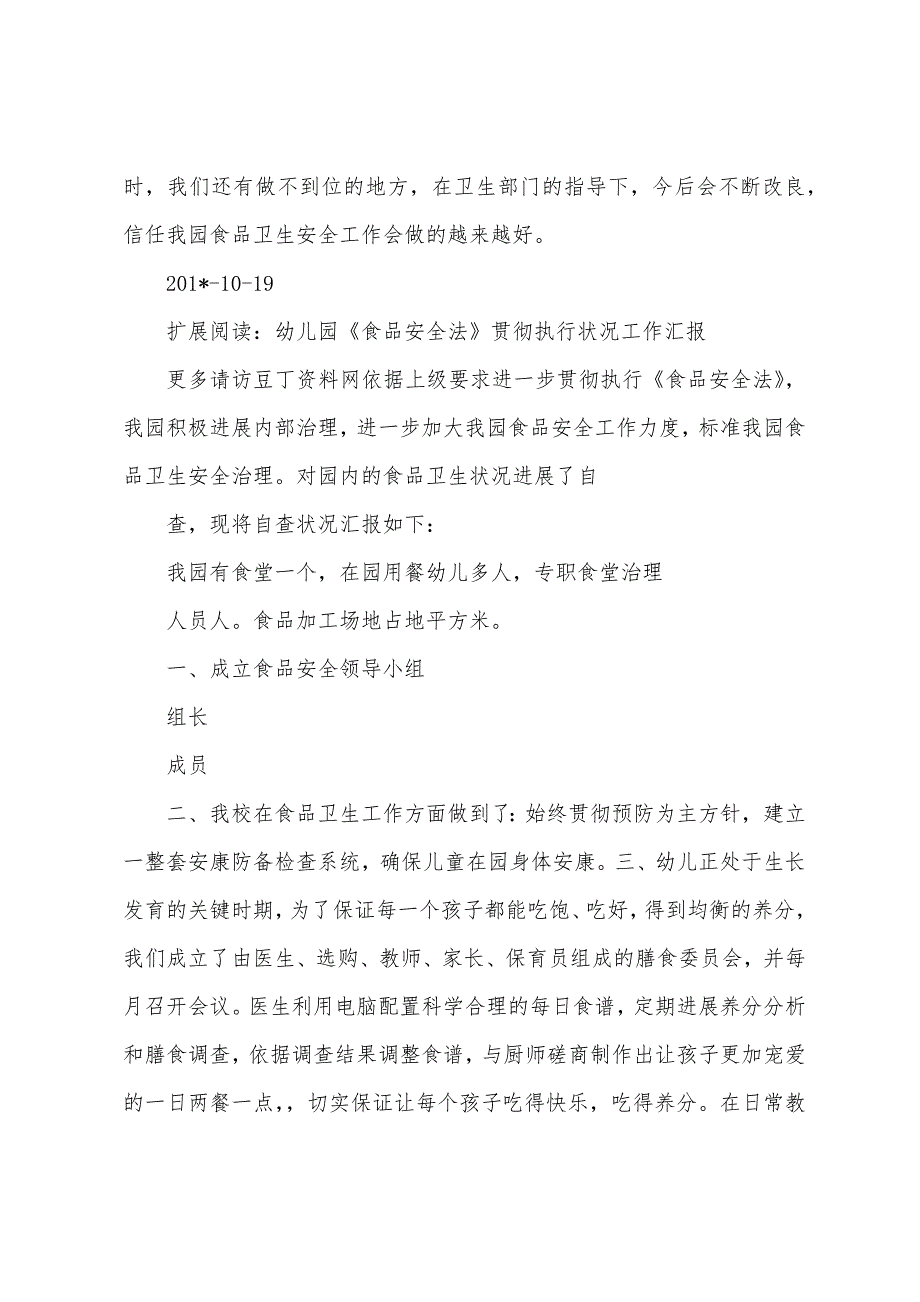 时，我们还有做不到位的地方，在卫生部门的指导下，今后会不断改良，
信任我园食品卫生安全工作会做的越来越好。
201*-10-19
扩展阅读：幼儿园《食品安全法》贯彻执行状况工作汇报
更多请访豆丁资料网依据上级要求进一步贯彻执行《食品安全法》，
我园积极进展内部治理，进一步加大我园食品安全工作力度，标准我园食
品卫生安全治理。对园内的食品卫生状况进展了自
查，现将自查状况汇报如下：
我园有食堂一个，在园用餐幼儿多人，专职食堂治理
人员人。食品加工场地占地平方米。
一、成立食品安全领导小组
组长
成员
二、我校在食品卫生工作方面做到了：始终贯彻预防为主方针，建立
一整套安康防备检查系统，确保儿童在园身体安康。三、幼儿正处于生长
发育的关键时期，为了保证每一个孩子都能吃饱、吃好，得到均衡的养分，
我们成立了由医生、选购、教师、家长、保育员组成的膳食委员会，并每
月召开会议。医生利用电脑配置科学合理的每日食谱，定期进展养分分析
和膳食调查，依据调查结果调整食谱，与厨师磋商制作出让孩子更加宠爱
的一日两餐一点，，切实保证让每个孩子吃得快乐，吃得养分。在日常教